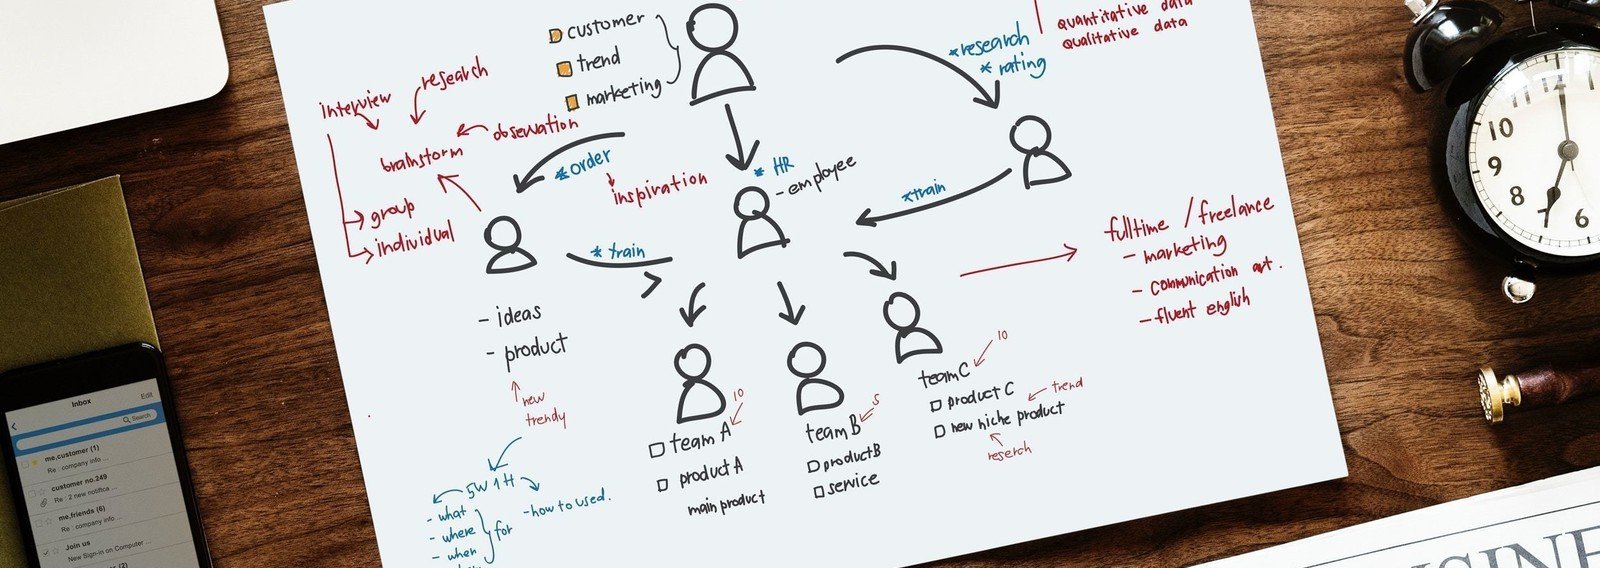 customer
trend
marketing
quantitative data
qualitative data
*research
* rating
interview
research
obsevation
brainstorm
group
individual
*order
inspiration
* HR
- employee
*train
* train
- ideas
- product
new
trendy
5W1H
- what
- where
- when
for
- how to used.
team A
10
product A
main product
team B
5
product B
service
team C
10
product C
new niche product
trend
reserch
fulltime / freelance
- marketing
- communication art.
- fluent english
Inbox
Edit
Search
me,customer (1)
Re : company info ...
customer no.249
Re : 2 new notifica ...
me.friends (6)
Re : company info ...
Join us
New Sign-in on Computer ...
(2)
11 12
10
9
8
6